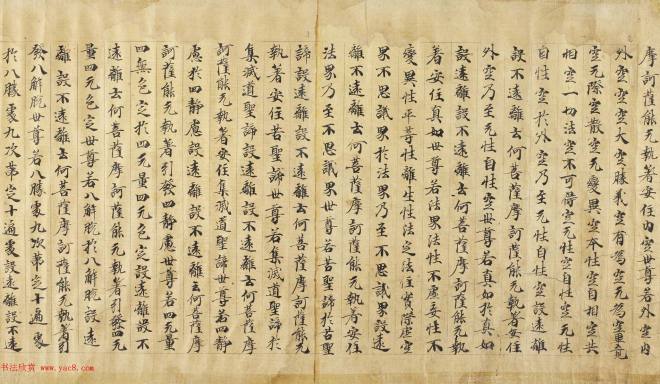 摩訶薩能无執著安住内空世尊若外空内
外空空空大空勝義空有為空无為空畢竟
空无際空散空无變異空本性空自相空共
相空一切法空不可得空无性空自性空无性
自性空於外空乃至无性自性空設遠離
設不遠離云何菩薩摩訶薩能无執著安住
外空乃至无性自性空世尊若真如於真如
設遠離設不遠離云何菩薩摩訶薩能无執
著安住真如世尊若法界法性不虛妄性不
變異性平等性離生性法定法住實際虛空
界不思議界於法界乃至不思議界設遠
離不遠離云何菩薩摩訶薩能无執著安住
法界乃至不思議界世尊若苦聖諦於苦聖
諦設遠離設不遠離云何菩薩摩訶薩能无
執著安住苦聖諦世尊若集滅道聖諦於
集滅道聖諦設遠離設不遠離云何菩薩摩
訶薩能无執著安住集滅道聖諦世尊若四靜
慮於四靜慮設遠離設不遠離云何菩薩摩
訶薩能无執著引發四靜慮世尊若四无量
四無色定於四无量四无色定設遠離設不
遠離云何菩薩摩訶薩能无執著引發四无
量四无色定世尊若八解脫於八解脫設遠
離設不遠離云何菩薩摩訶薩能无執著引
發八解脫世尊若八勝處九次第定十遍處
於八勝處九次第定十遍處設遠離設不遠
书法欣赏 www.yac8.com